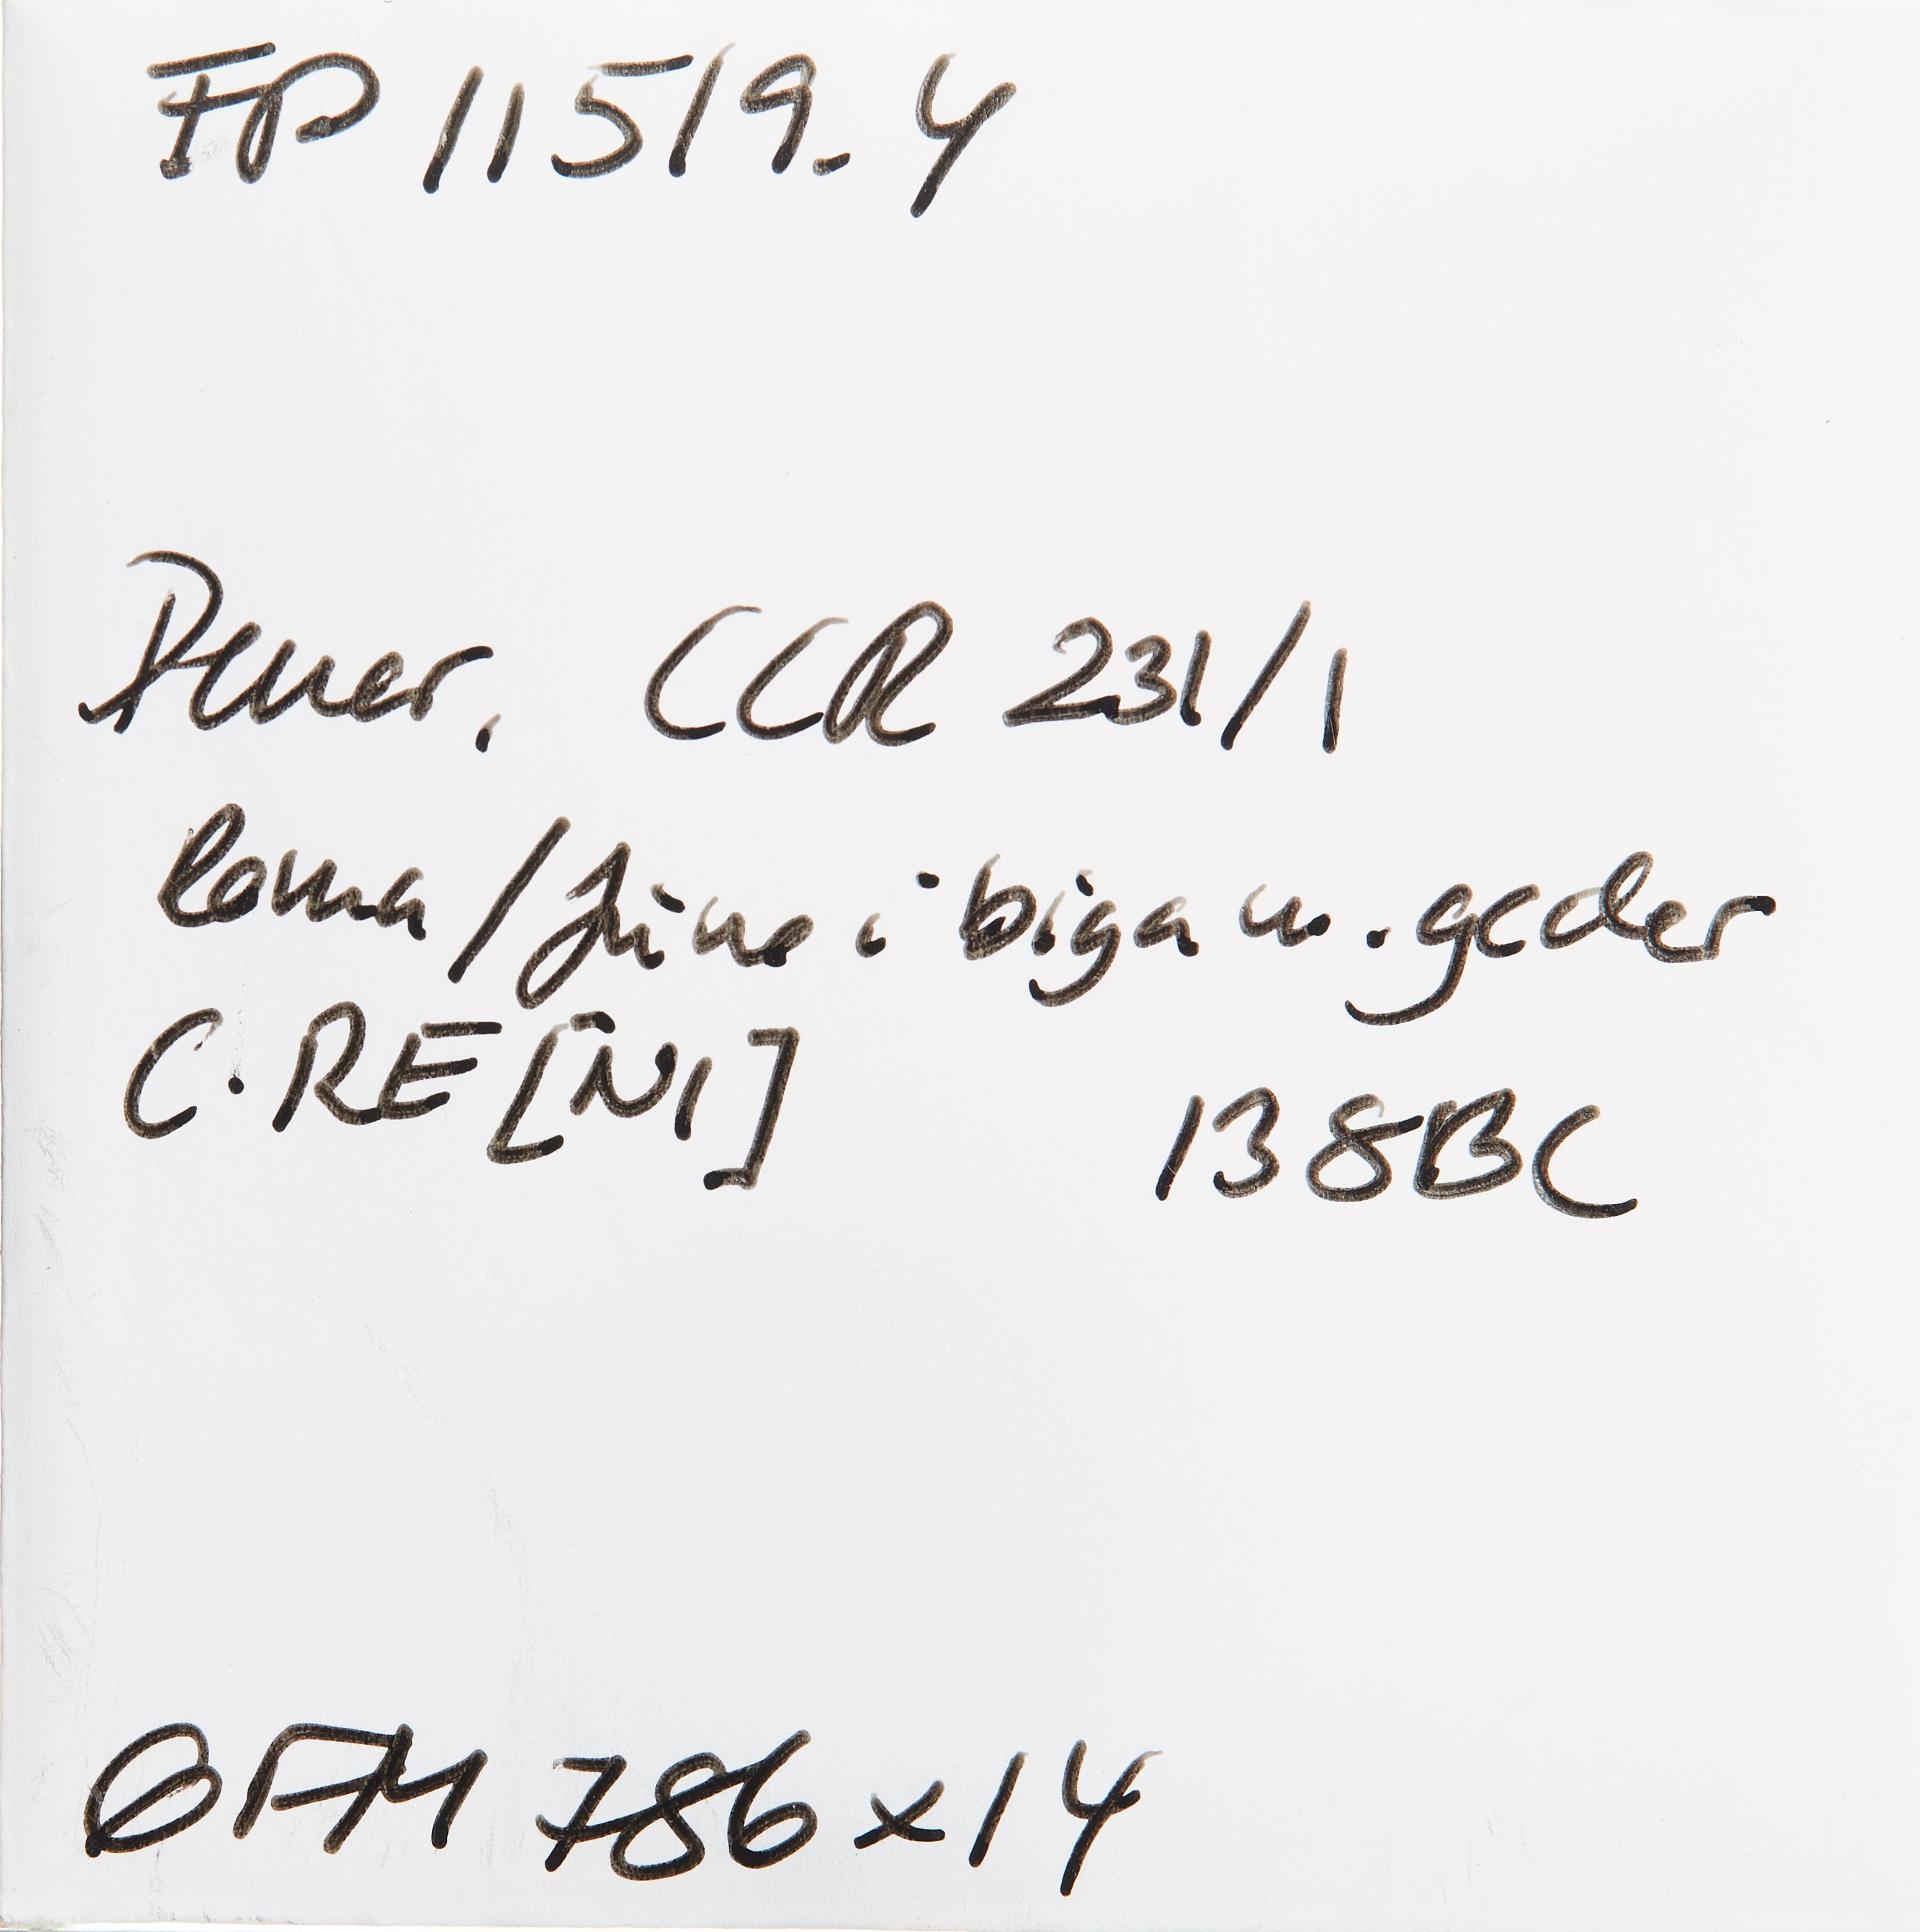 FP 11519.4
Dener. CCR 231/1
Roma/Juno i biga m. geder
C. RE[NI] 138BC
ØFM 786x14